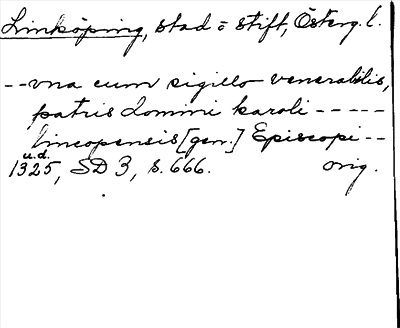 Linköping, stad o stift, Österg. l.
-- vna cum sigillo venerabilis,
patris Domini karoli -----
lincopensis [gen.] Episcopi --
u.d.
1325, SD 3, s. 666. orig.